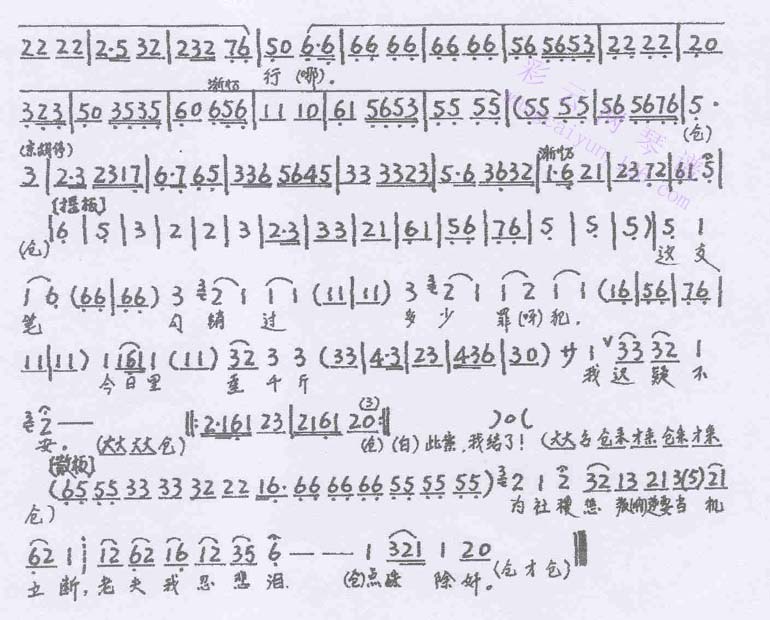 22 22 | 2·5 32 | 232 76 | 50 6·6 | 66 66 | 66 66 | 56 5653 | 22 22 | 20
行(哪)。
渐快
323 | 50 3535 | 60 656 | 11 10 | 61 5653 | 55 55 | (55 55 | 56 5676 | 5·
(仓)
(京胡停)
渐快
3 | 2·3 2317 | 6·7 65 | 336 5645 | 33 3323 | 5·6 3632 | 1·6 21 | 23 72 | 61 5 |
[摇板]
(仓) | 6 | 5 | 3 | 2 | 2 | 3 | 2·3 | 33 | 21 | 61 | 56 | 76 | 5 | 5 | 5) | 5 1
这支
1 6 (66 | 66) 3 2 1 1 1 (11 | 11) 3 2 1 1 2 1 1 (16 | 56 | 76 |
笔 勾销过 多少罪(呀)犯,
11 | 11) 1 161 1 (11) 32 3 3 (33 | 4·3 | 23 | 436 | 30) サ 1 33 32 1
今日里 重千斤 我迟疑不
2 — — ‖: 2·161 23 | 2161 20 :‖ )0(
安。(大大 大大 仓) (仓) (白)此案,我结了!
[散板]
(65 55 33 33 32 22 16· 66 66 66 55 55 55) 2 1 2 32 13 21 3(5) 21
仓) 为社稷 当机
62 1 ; 12 62 16 12 35 6 — — 1 321 1 20
立断,老夫我忍悲泪 (仓)点 除奸。(仓 才 仓)